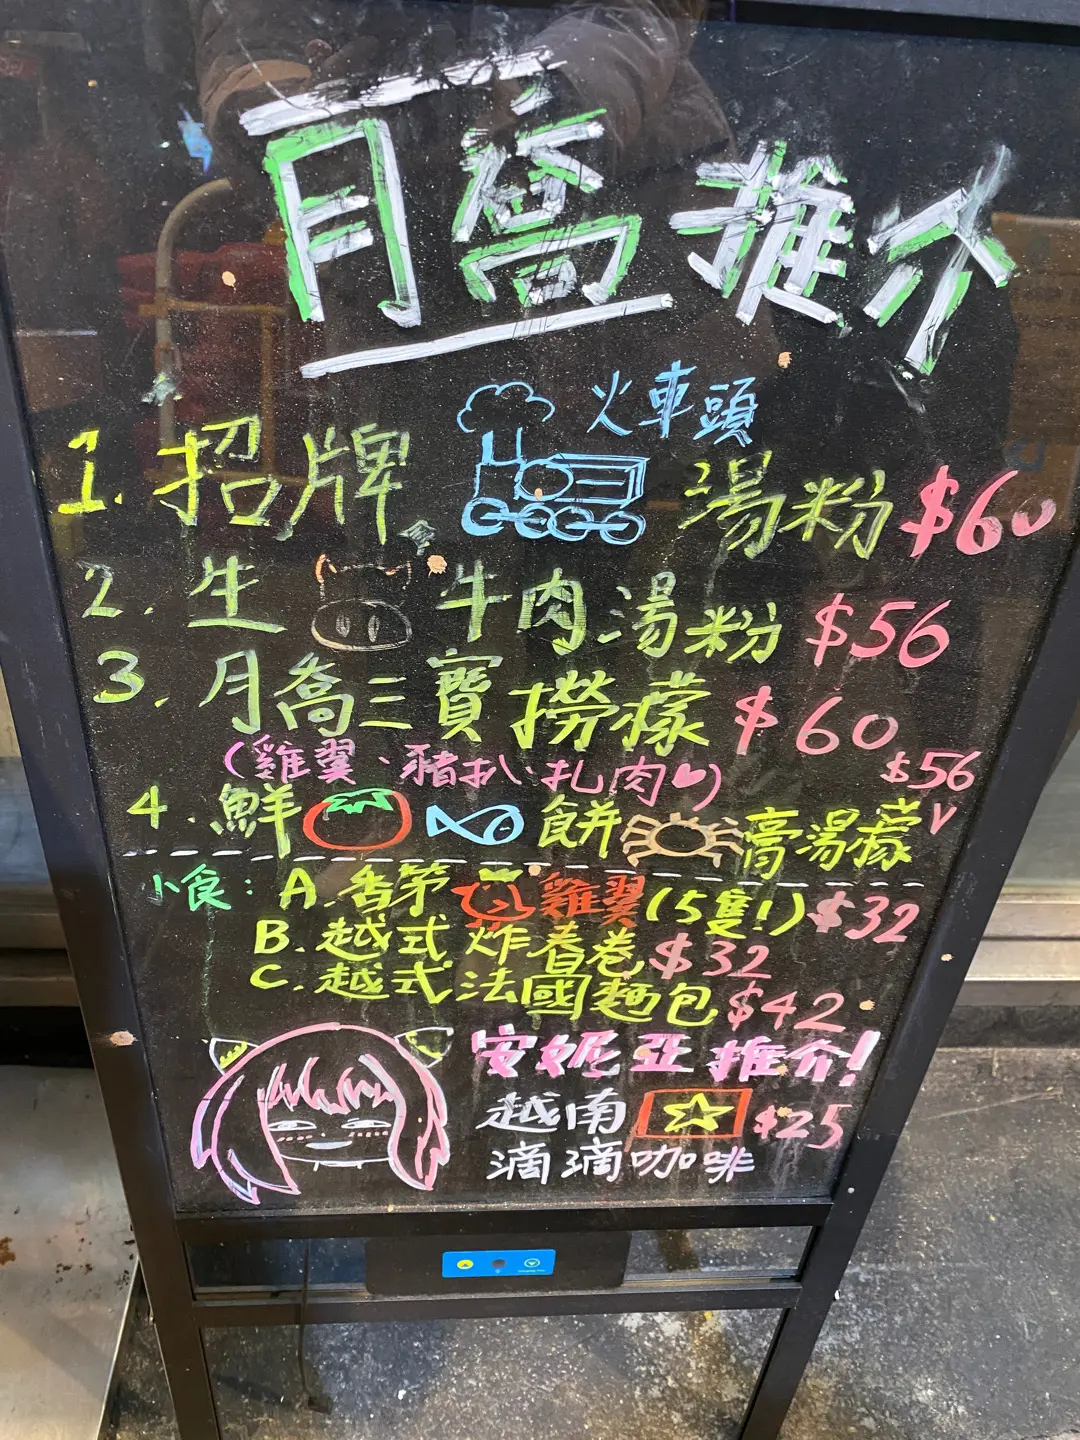 月喬推介
1. 招牌 火車頭 湯粉 $60
2. 生 牛肉湯粉 $56
3. 月喬三寶撈檬 $60
(雞翼、豬扒、扎肉)
4. 鮮 餅 膏湯檬 $56
小食: A. 香茅 雞翼 (5隻!) $32
B. 越式炸春卷 $32
C. 越式法國麵包 $42
安妮亞推介!
越南 $25
滴滴咖啡